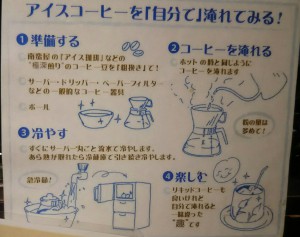 アイスコーヒーを「自分で」淹れてみる!
① 準備する
南蛮屋の「アイス珈琲」などの
"極深煎り"のコーヒー豆を「粗挽き」で!
サーバー・ドリッパー・ペーパーフィルター
などの一般的なコーヒー器具
ボール
② コーヒーを淹れる
ホットの時と同じように
コーヒーを淹れます
粉の量は
多めで!
③ 冷やす
すぐにサーバー丸ごと流水で冷やします。
あら熱が取れたら冷蔵庫で引き続き冷やします。
急冷却!
④ 楽しむ
リキッドコーヒーも
良いけれど
自分で淹れると
一味違った
"趣"です